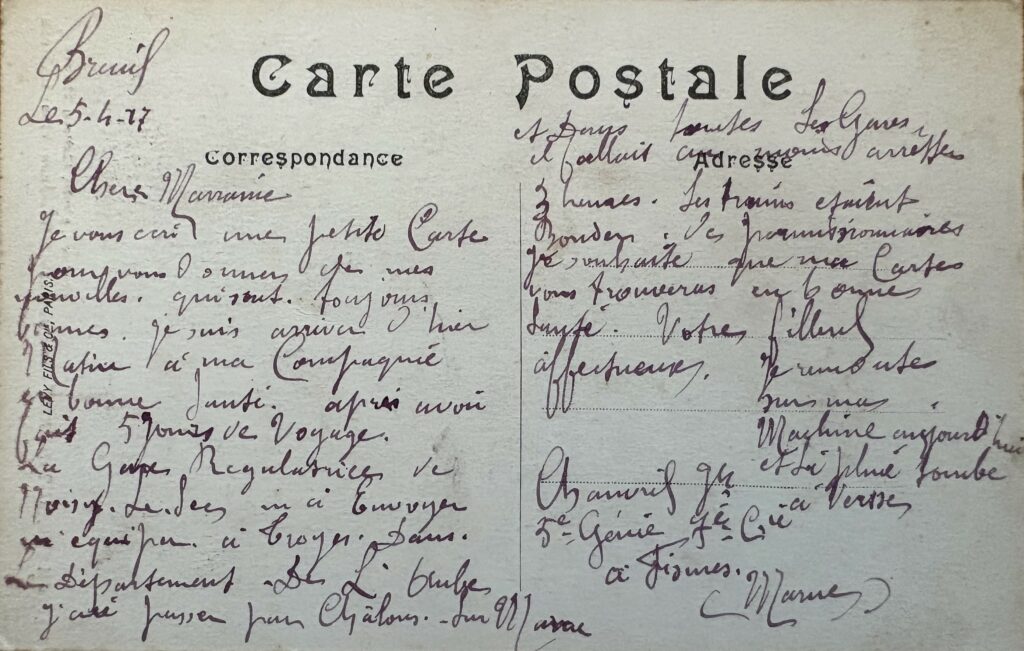 Carte Postale
Correspondance
Adresse
LEVY FILS & Cie PARIS
Breuil
Le 5-4-17
Chere Marraine
Je vous écrit une petite Carte
pour vous Donner de mes
nouvelles. qui sont. toujours
bonnes. je suis arriver d'hier
Matin à ma Compagnie
bonne Santé. après avoir
fait 5 Jours de Voyage.
La Gare Regulatrice de
Noisy-Le-Sec m'a Envoyer
m'équiper. à Troyes. Dans.
Le Département De L'Aube
j'ai passer par Châlons-Sur Marne
et Dans toutes Les Gares,
il fallait au moins arretter
3 heures. Les trains etaient
Bonder. Des permissionnaires
Je souhaite que ma Cartes
vous trouveras en bonnes
Santé. Votre filleul
affectueux. Je remonte
sur ma
Machine aujourd'hui
et La pluie tombe
à Verse
5e Génie Cie
à Fismes.
(Marne)